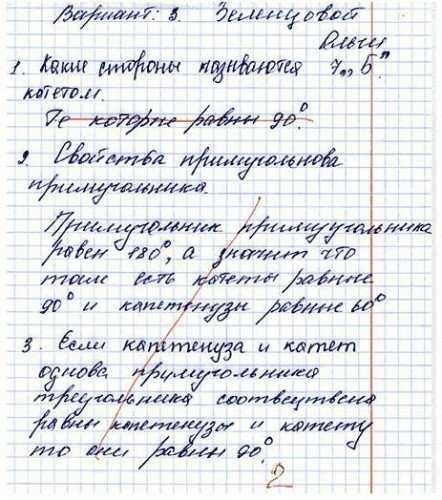 Вариант: 3. Зеленцовой
Ольги
1. Какие стороны называются 7 „Б"
катетом.
Те которые равны 90°.
2. Свойства примугольнова
примугольника.
Примугольник примуугольника
равен 180°, а значит что
там есть катеты равные
90° и капетенузы равные 60°
3. Если капетенуза и катет
однова примугольника
треугольника соотвецтвена
равны капетенузы и катету
то они равны 90°.
2